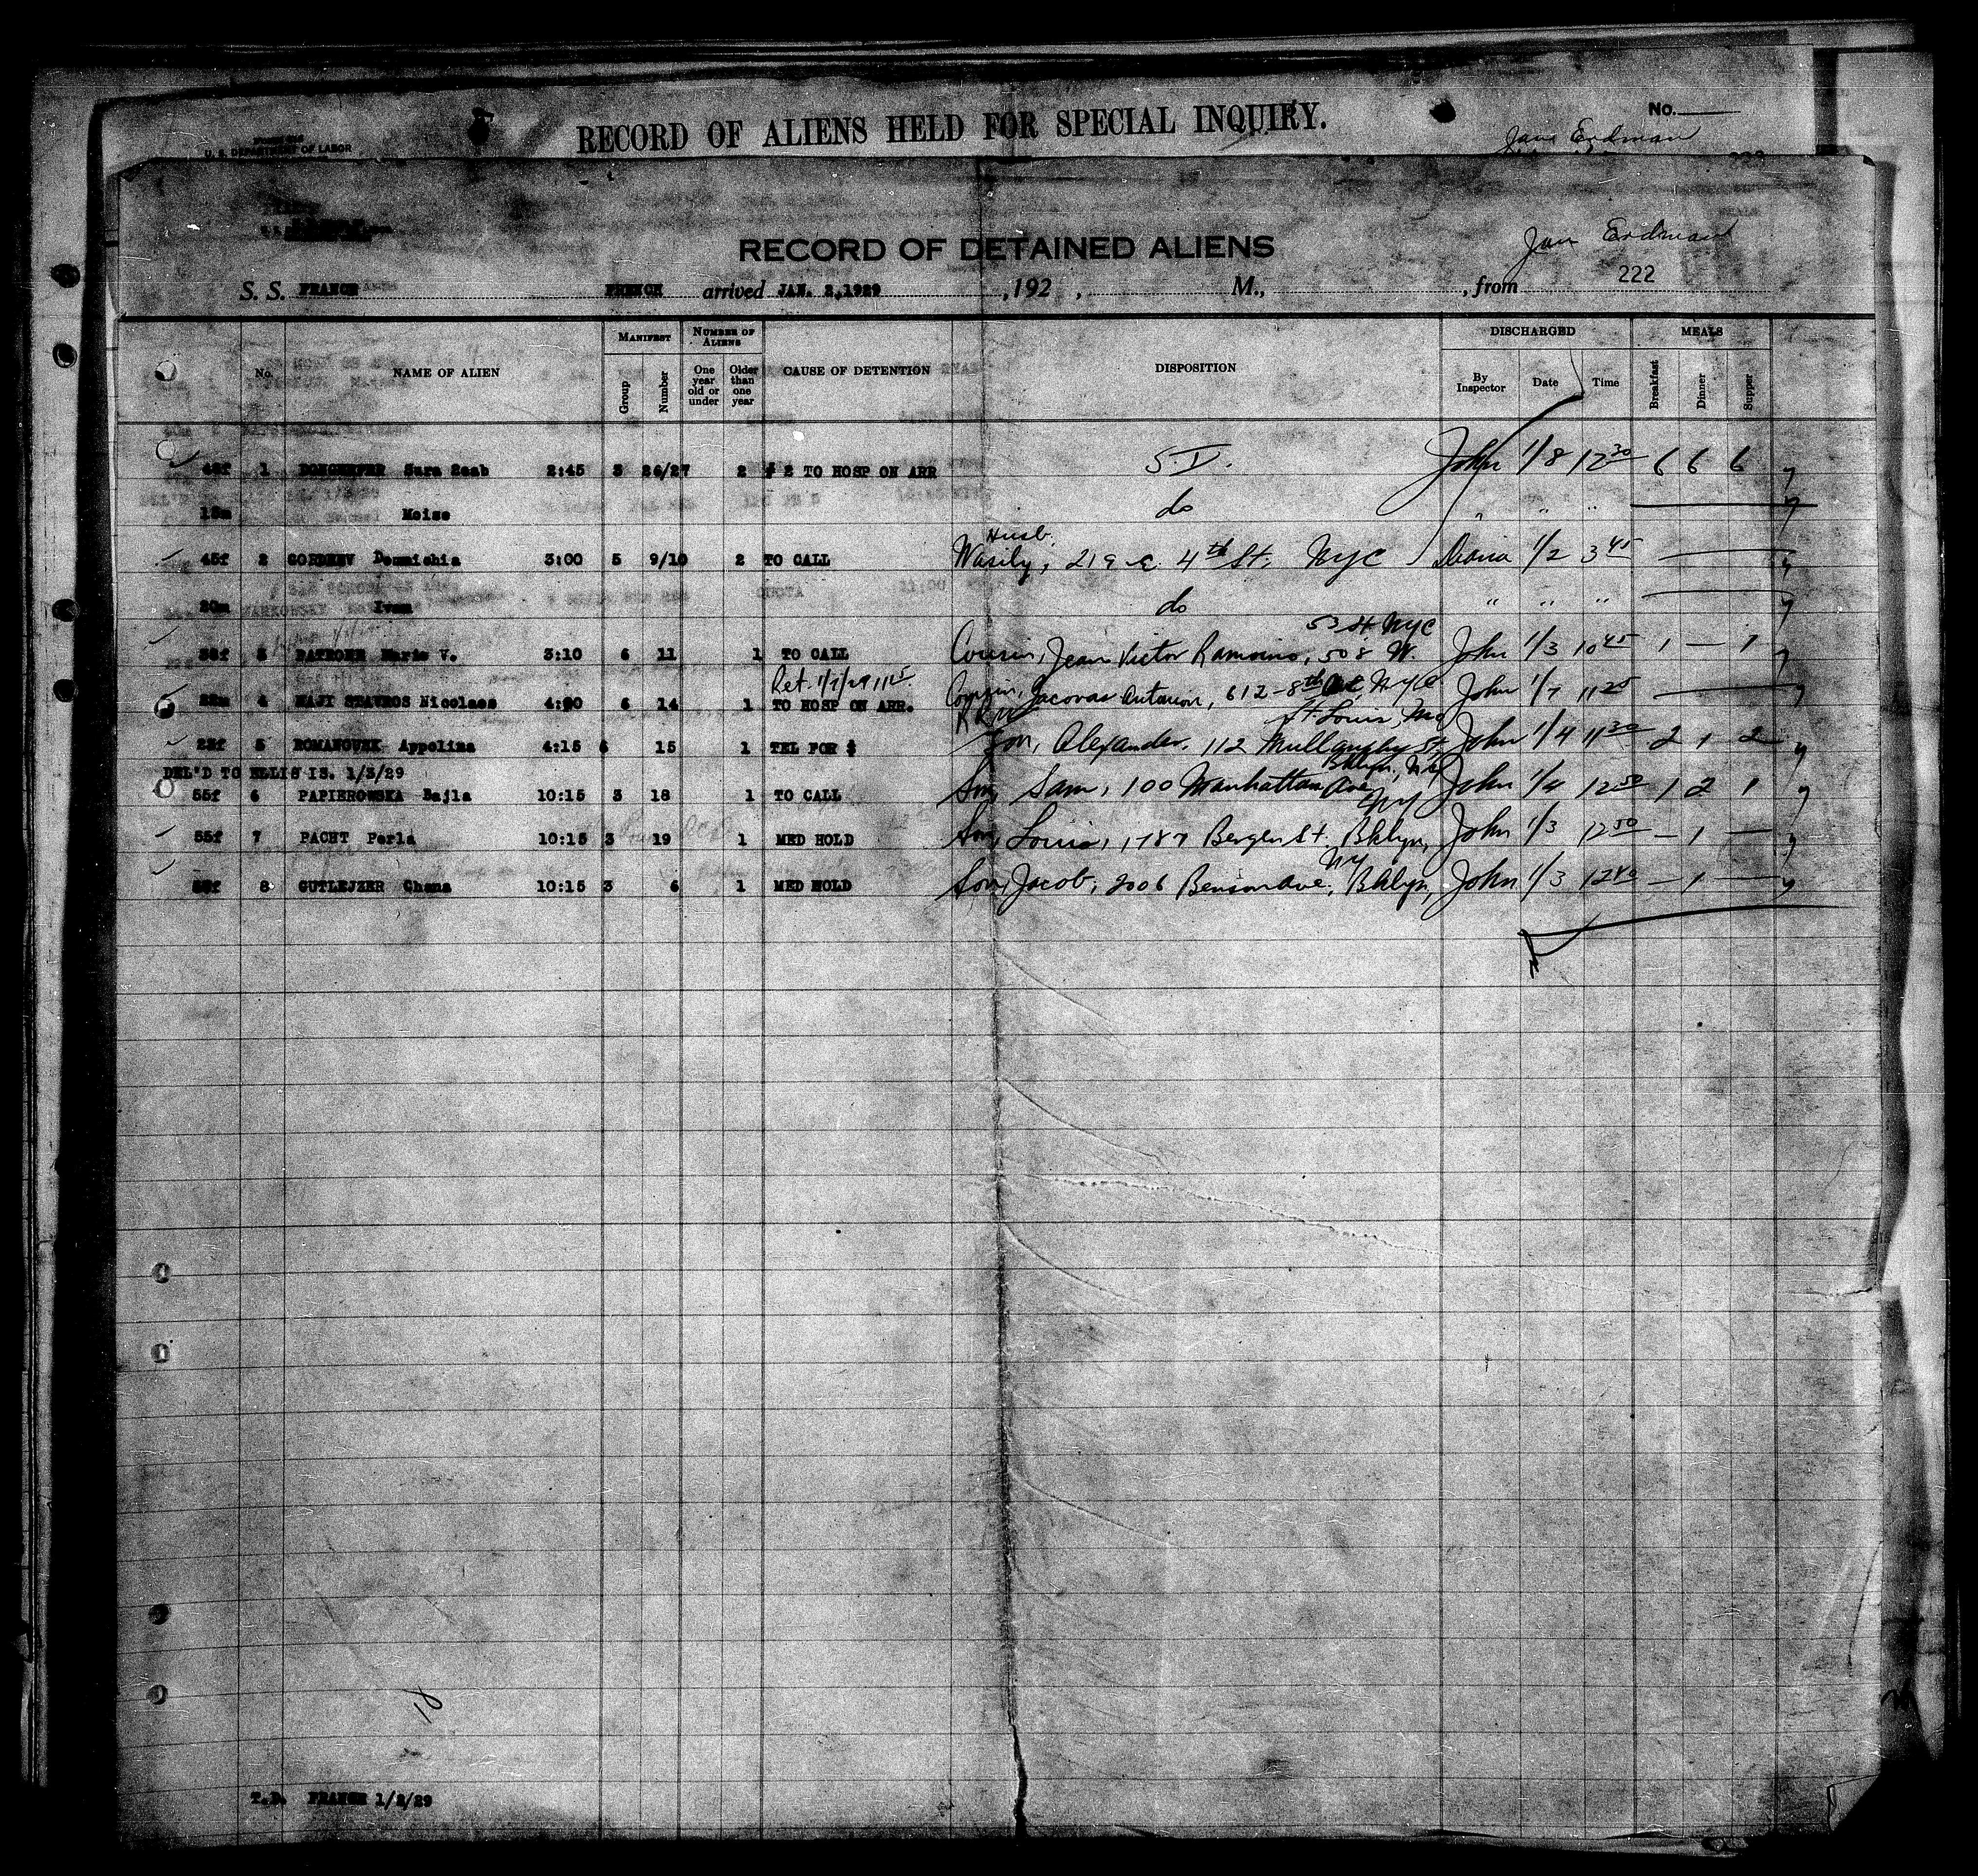 RECORD OF ALIENS HELD FOR SPECIAL INQUIRY.
No.
U. S. DEPARTMENT OF LABOR
Jan Erdman
RECORD OF DETAINED ALIENS
Jan Erdman
S. S. FRANCE FRENCH arrived JAN. 2,1929 ,192 , M., , from 222
No. NAME OF ALIEN MANIFEST Group Number NUMBER OF ALIENS One year old or under Older than one year CAUSE OF DETENTION DISPOSITION DISCHARGED By Inspector Date Time MEALS Breakfast Dinner Supper
1 Sura 2:45 3 26/27 2 # 2 TO HOSP ON ARR S.I. John 1/8 12 30 6 6 6
Moise do " " "
Husb.
45f 2 3:00 5 9/10 2 TO CALL Wasily, 219 E. 4th St, NYC 1/2 3 45
20m Ivan do " " "
53 St NYC
3 Marie V. 3:10 6 11 1 TO CALL Cousin, Jean Victor Ramoino, 508 W. John 1/3 10 45 1 — 1
Ret. 1/7/29 1125
4 HAJI STAVROS Nicolaos 4:00 6 14 1 TO HOSP ON ARR. Cousin, 612-8th Ave NYC John 1/7 11 25
St. Louis, Mo
23f 5 Appolina 4:15 6 15 1 TEL FOR $ Alexander, 112 Mullanphy St, John 1/4 11 30 2 1 2
DEL'D TO ELLIS IS. 1/3/29
Bklyn, NY
55f 6 PAPIEROWSKA Bajla 10:15 3 18 1 TO CALL Son, Sam, 100 Manhattan Ave, John 1/4 12 50 1 2 1
NY
55f 7 PACHT Perla 10:15 3 19 1 MED HOLD Son, Louis, 1787 Bergen St. Bklyn, John 1/3 12 50 — 1 —
NY
8 GUTLEJZER Chana 10:15 3 6 1 MED HOLD Son, Jacob, 2006 Benson Ave, Bklyn, John 1/3 12 40 — 1 —
18
T.D. FRANCE 1/2/29